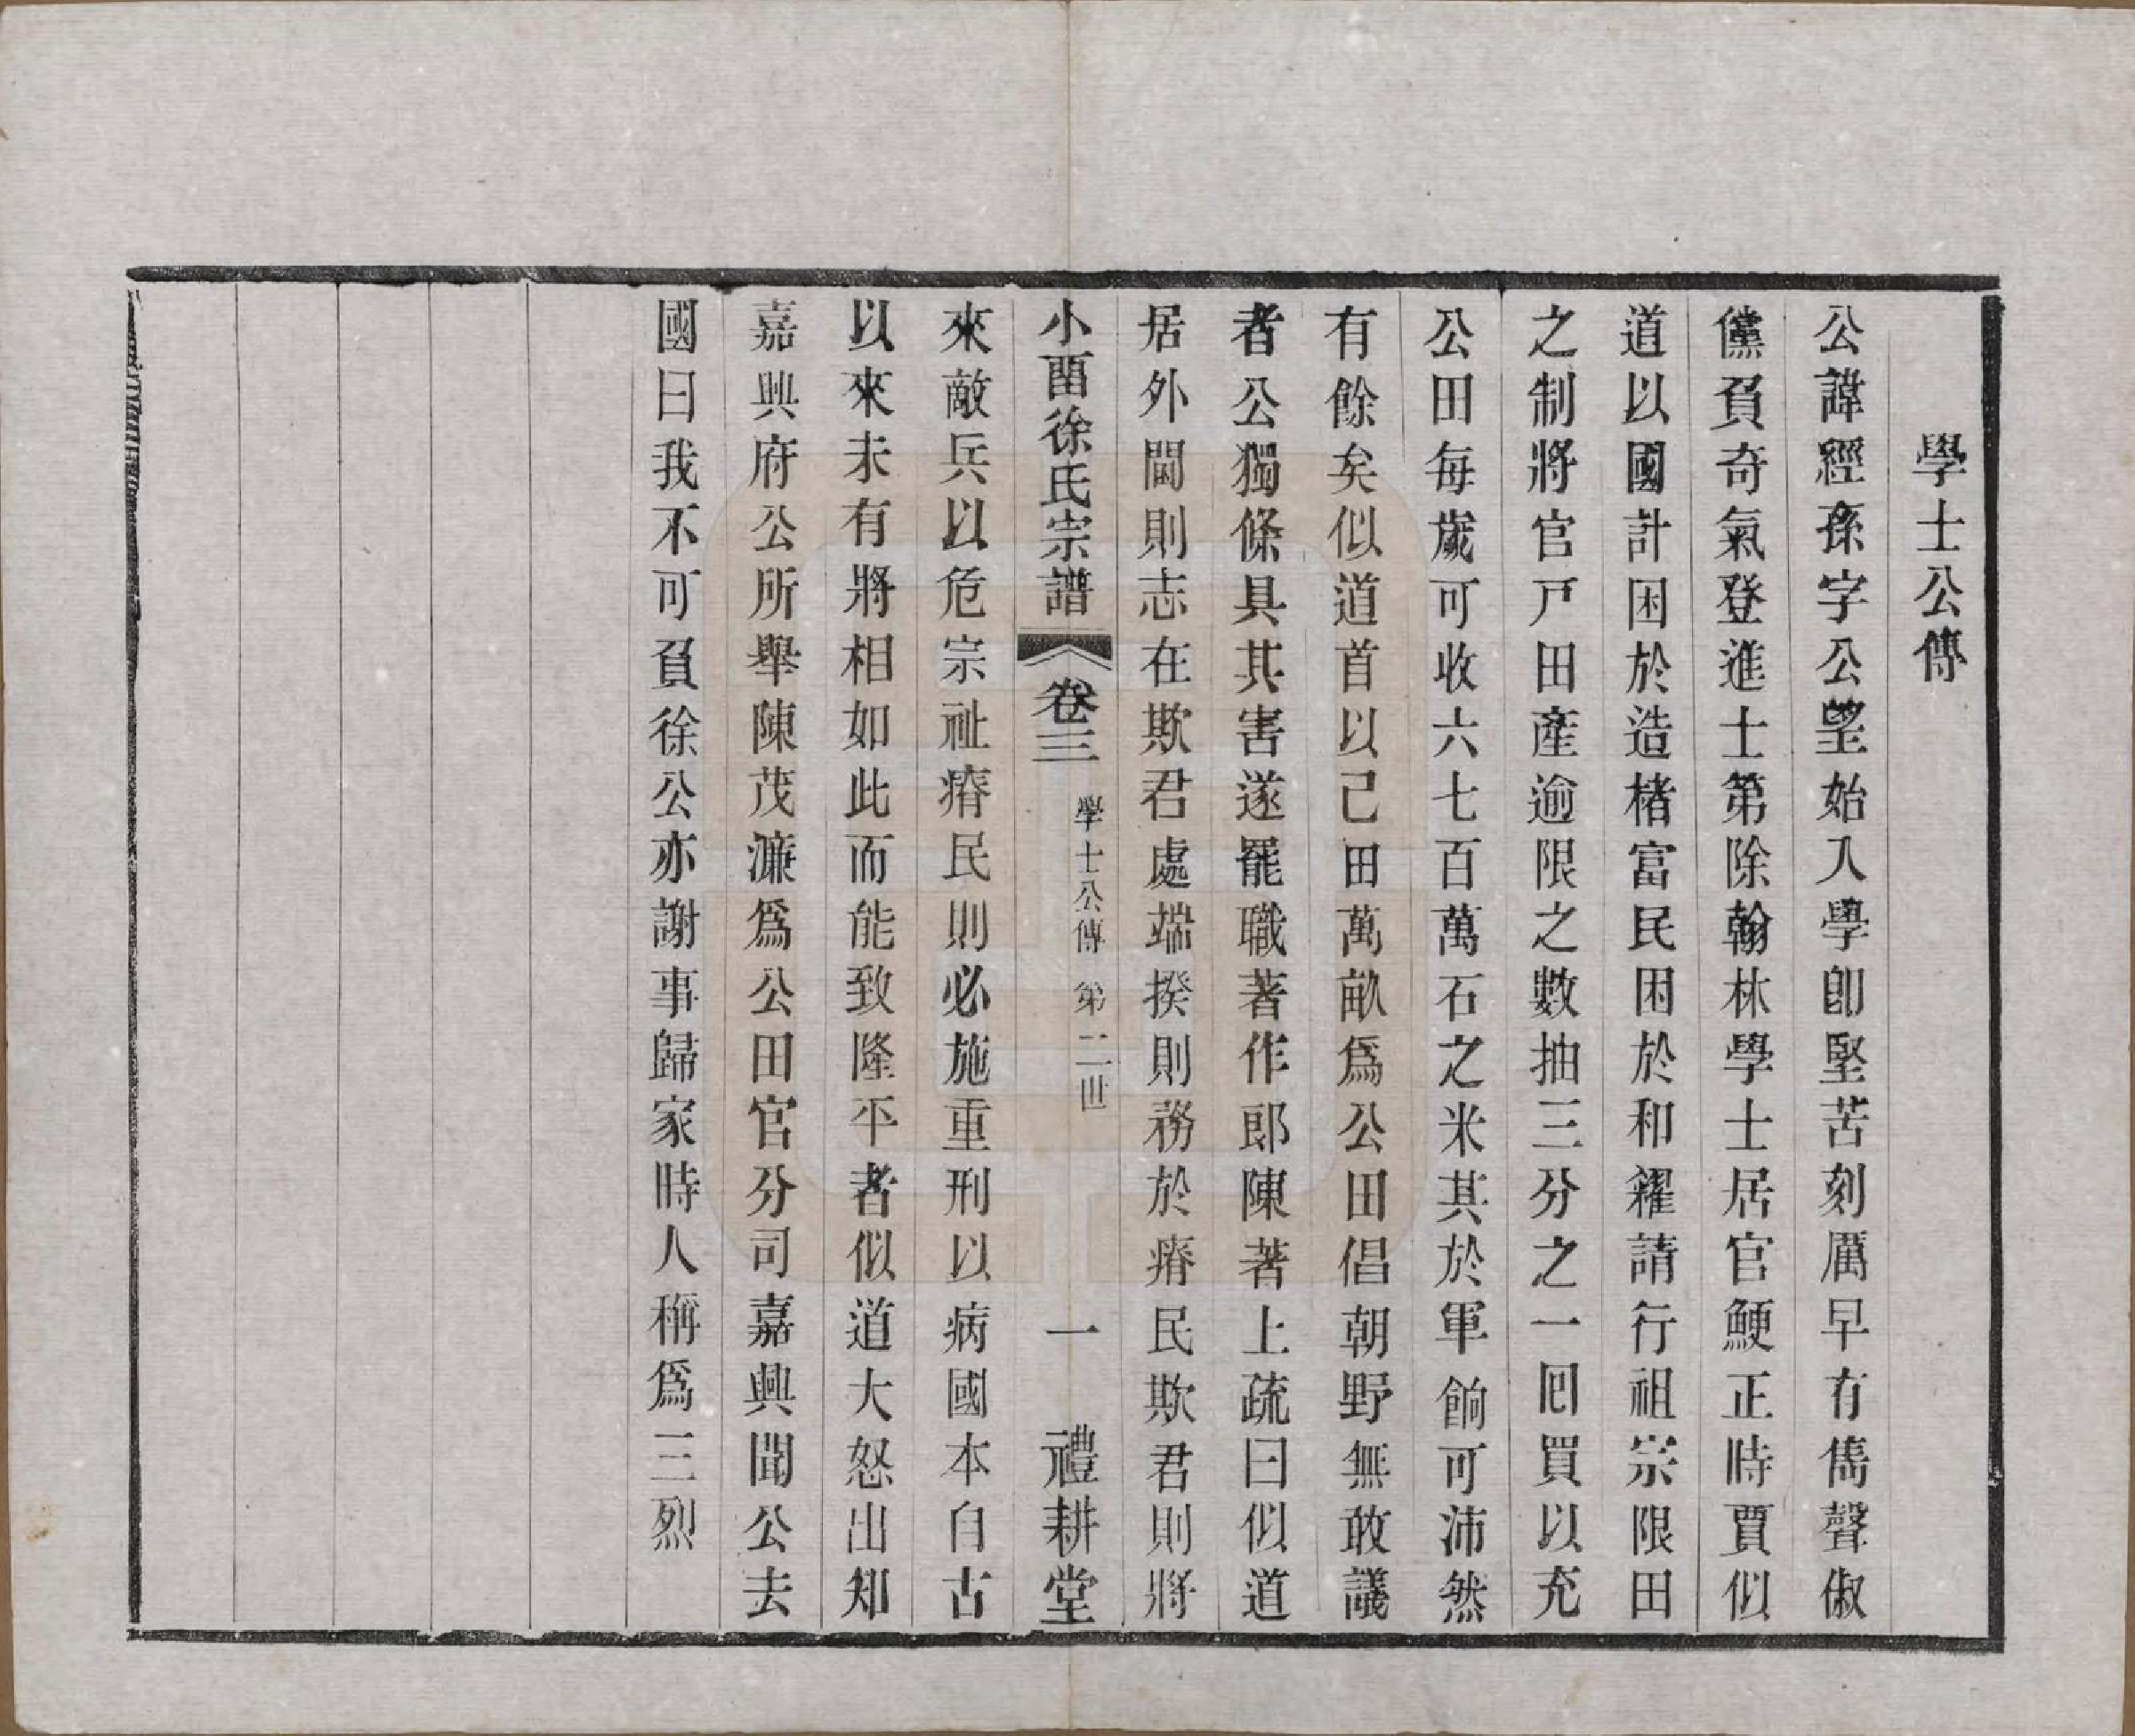 學士公傳
公諱經孫字公望始入學卽堅苦刻厲早有雋聲俶
儻負奇氣登進士第除翰林學士居官鯁正時賈似
道以國計困於造楮富民困於和糴請行祖宗限田
之制將官戸田產逾限之數抽三分之一回買以充
公田每歲可收六七百萬石之米其於軍餉可沛然
有餘矣似道首以己田萬畝爲公田倡朝野無敢議
者公獨條具其害遂罷職著作郎陳著上疏曰似道
居外閫則志在欺君處端揆則務於瘠民欺君則將
小酉徐氏宗譜 卷三 學士公傳 第二世 一 禮耕堂
來敵兵以危宗祉瘠民則必施重刑以病國本自古
以來未有將相如此而能致隆平者似道大怒出知
嘉興府公所舉陳茂濂爲公田官分司嘉興聞公去
國曰我不可負徐公亦謝事歸家時人稱爲三烈